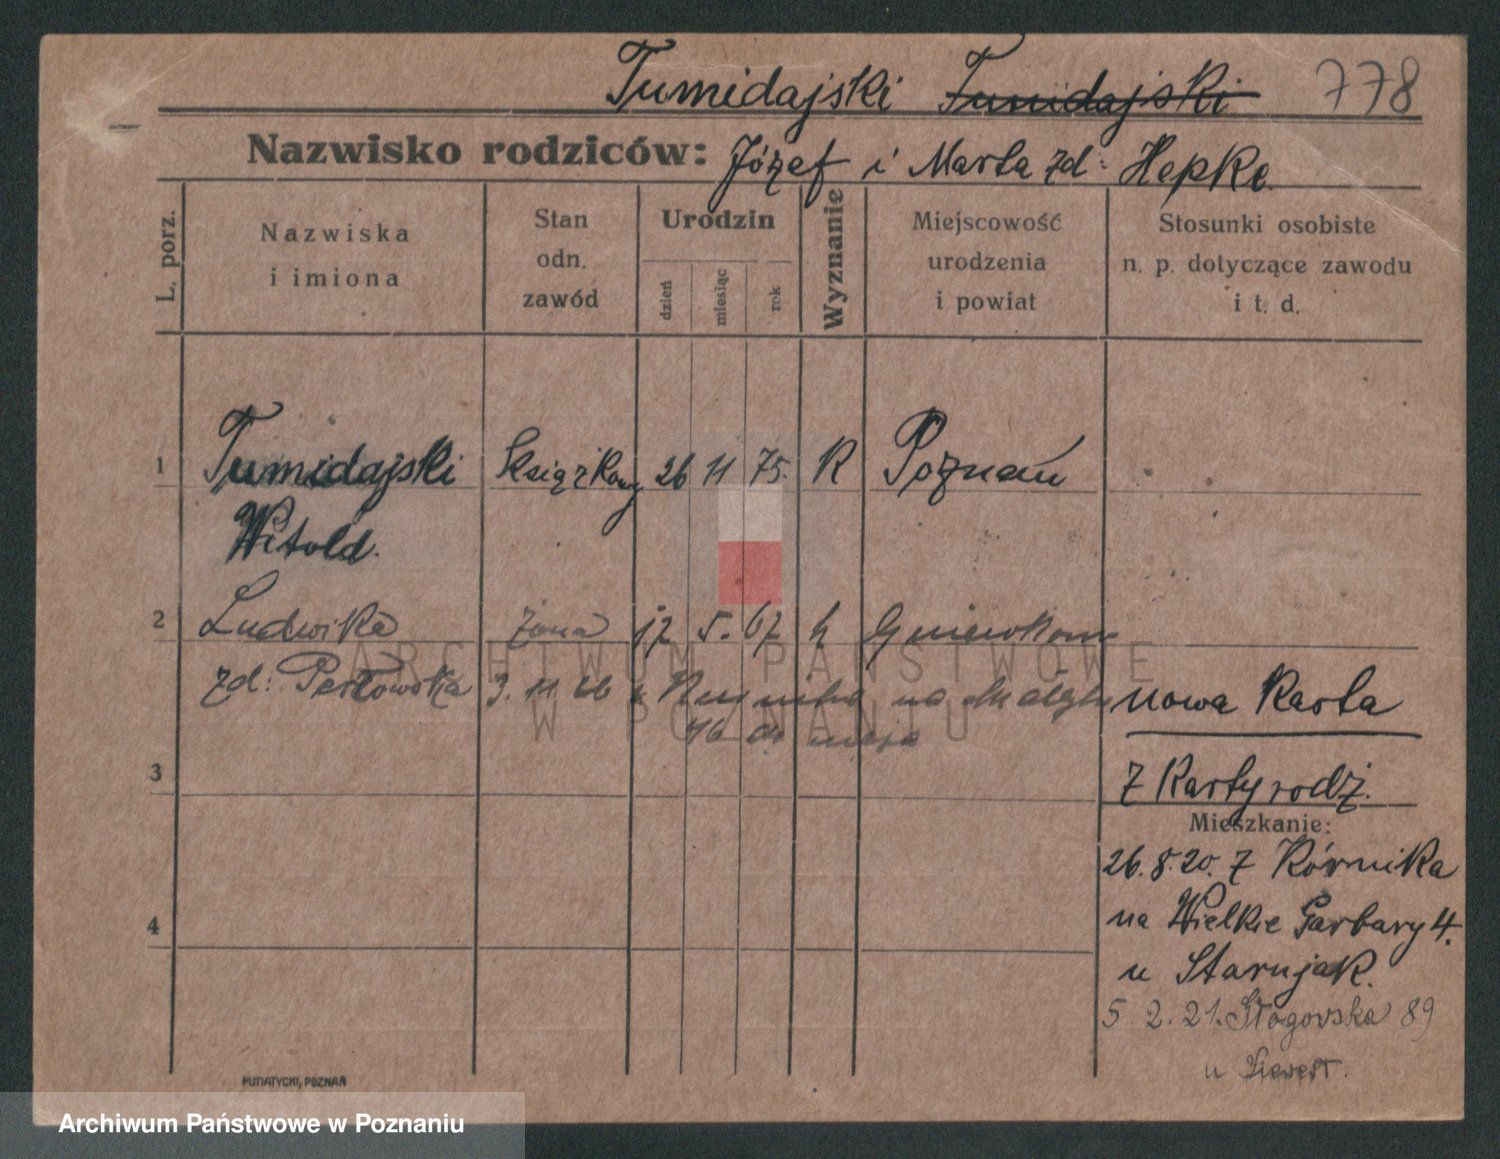 Tumidajski Tumidajski 778
Nazwisko rodziców: Józef i Marta zd: Hepke.
L. porz.
Nazwiska
i imiona
Stan
odn.
zawód
Urodzin
dzień
miesiąc
rok
Wyznanie
Miejscowość
urodzenia
i powiat
Stosunki osobiste
n. p. dotyczące zawodu
i t. d.
1 Tumidajski Książkowy 26 11 75. R Poznań
Witold.
2 Ludwika żona 5. 67 Gniewkowo
zd: Perłowska 3. 11 na
nowa Karta
3 z Karty rodz.
Mieszkanie:
26. 8. 20. z Kórnika
na Wielkie Garbary 4.
4
u Starujak.
5. 2. 21. Głogowska 89
u
PUTIATYCKI, POZNAŃ
ARCHIWUM PAŃSTWOWE
W POZNANIU
Archiwum Państwowe w Poznaniu